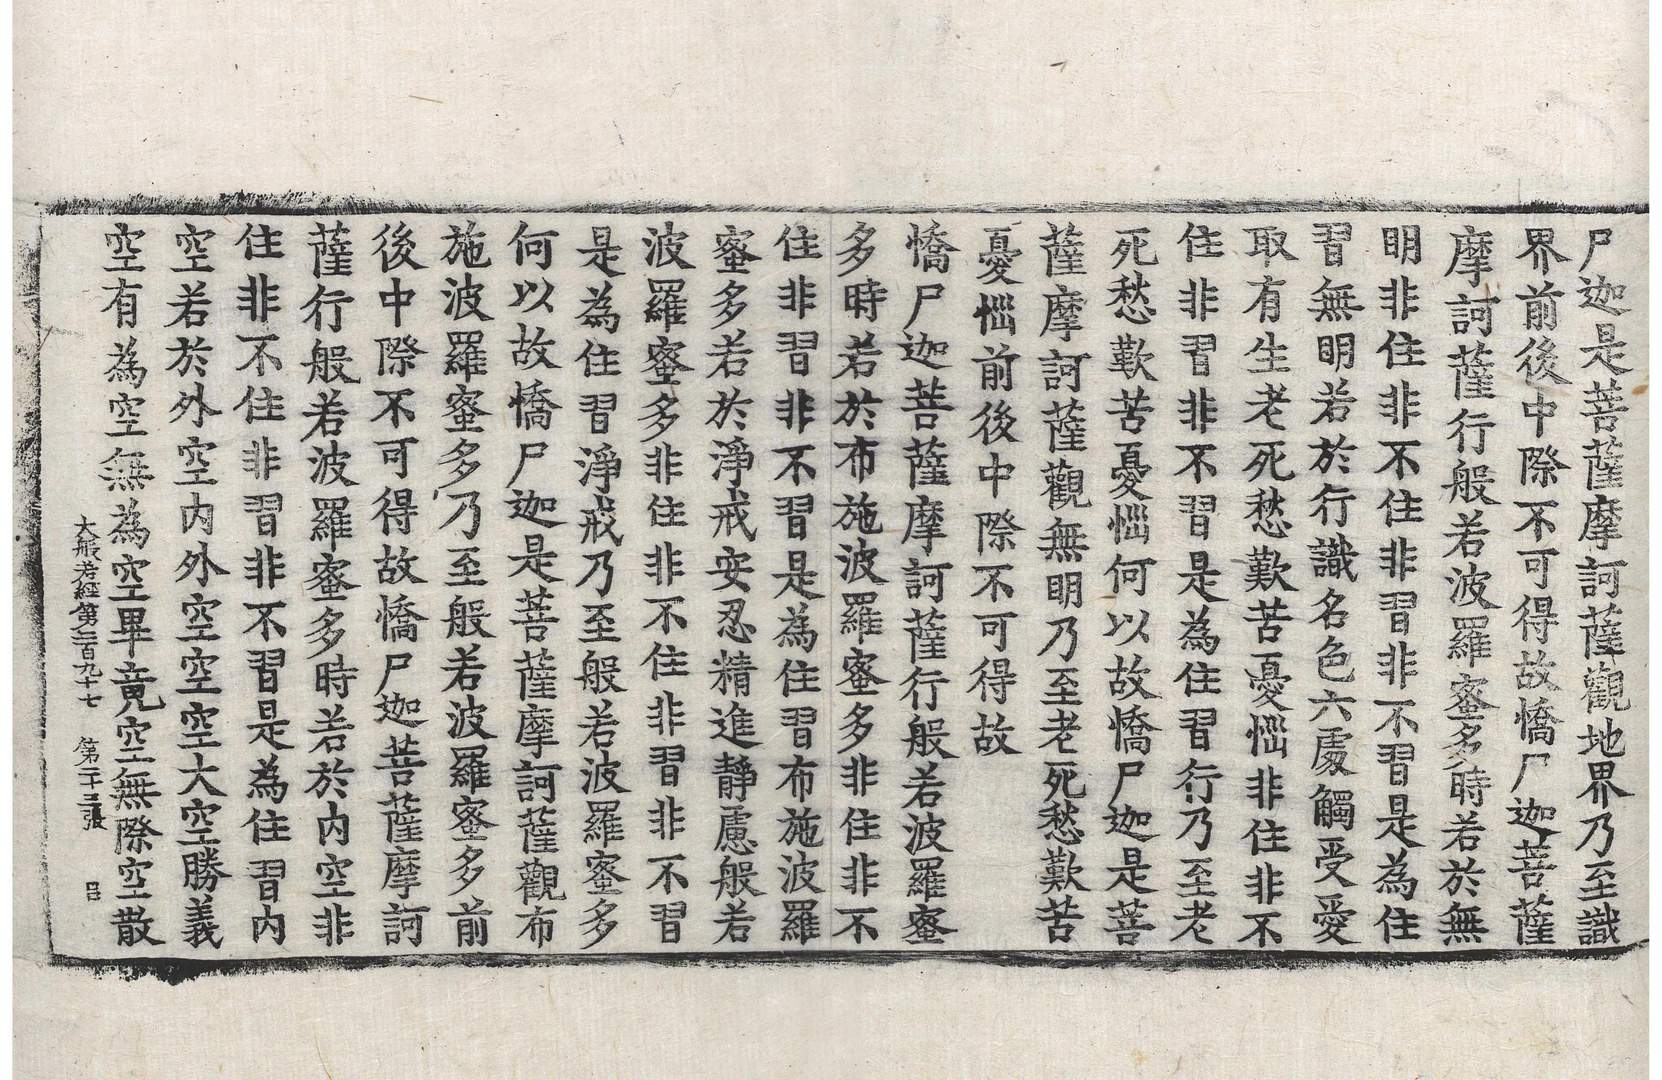 尸迦是菩薩摩訶薩觀地界乃至識
界前後中際不可得故憍尸迦菩薩
摩訶薩行般若波羅蜜多時若於無
明非住非不住非習非不習是為住
習無明若於行識名色六處觸受愛
取有生老死愁歎苦憂惱非住非不
住非習非不習是為住習行乃至老
死愁歎苦憂惱何以故憍尸迦是菩
薩摩訶薩觀無明乃至老死愁歎苦
憂惱前後中際不可得故
憍尸迦菩薩摩訶薩行般若波羅蜜
多時若於布施波羅蜜多非住非不
住非習非不習是為住習布施波羅
蜜多若於淨戒安忍精進靜慮般若
波羅蜜多非住非不住非習非不習
是為住習淨戒乃至般若波羅蜜多
何以故憍尸迦是菩薩摩訶薩觀布
施波羅蜜多乃至般若波羅蜜多前
後中際不可得故憍尸迦菩薩摩訶
薩行般若波羅蜜多時若於內空非
住非不住非習非不習是為住習內
空若於外空內外空空空大空勝義
空有為空無為空畢竟空無際空散
大般若經第二百九十七 第二十三張 呂